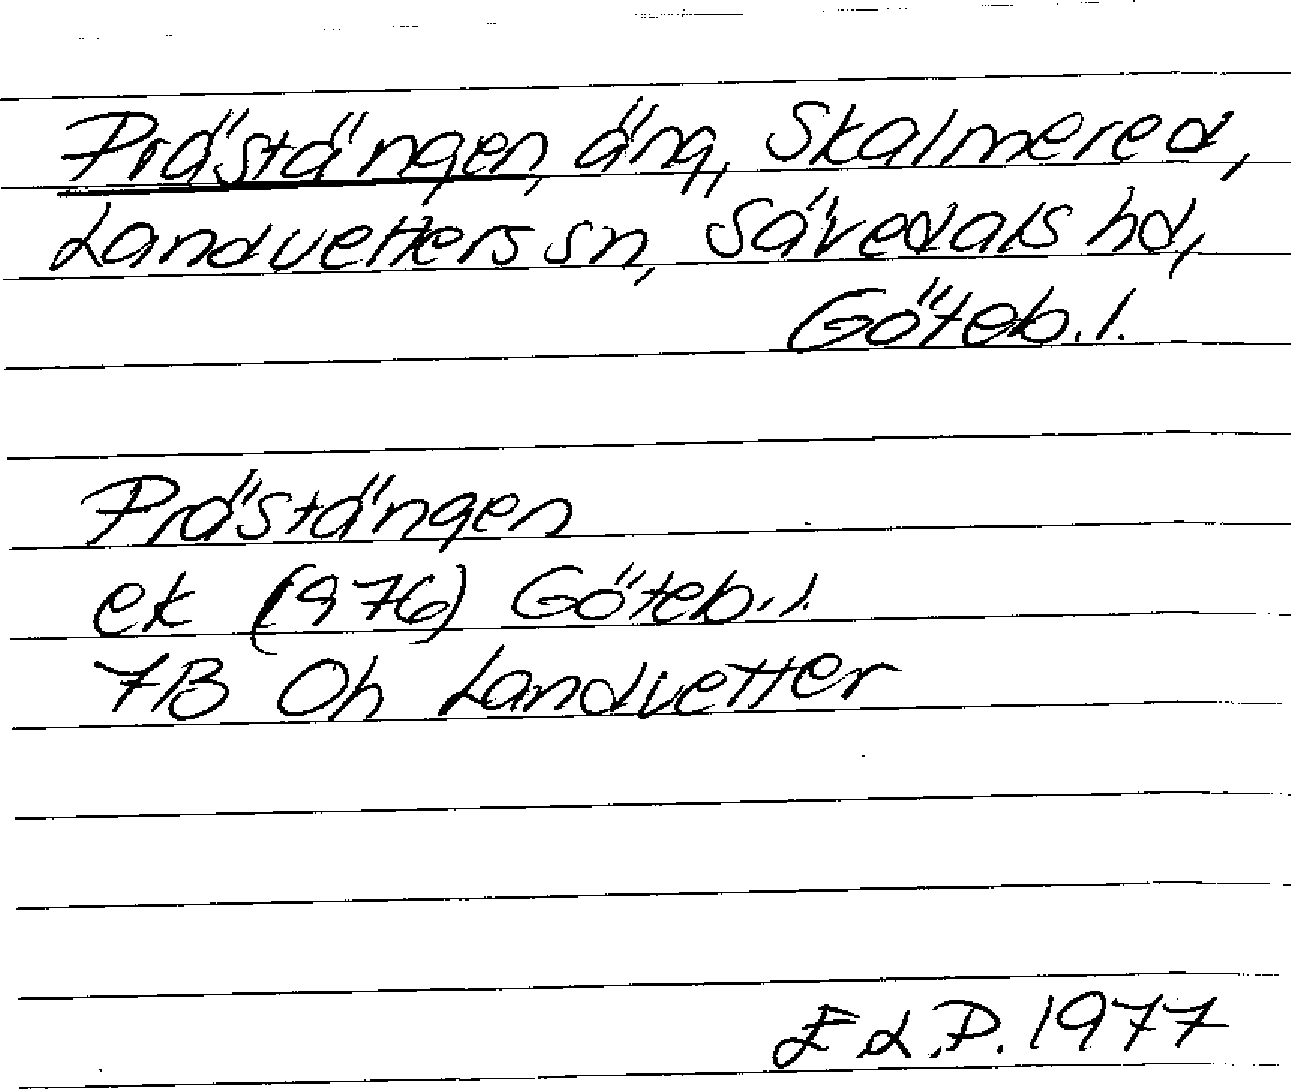 Prästängen, äng, Skalmered,
Landvetters sn, Sävedals hd,
Göteb. l.
Prästängen
ek (1976) Göteb. l.
7B Oh Landvetter
E.d.P. 1977